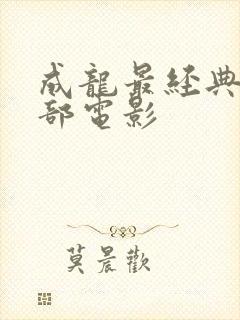 成龍最經典
部電影
莫晨歡